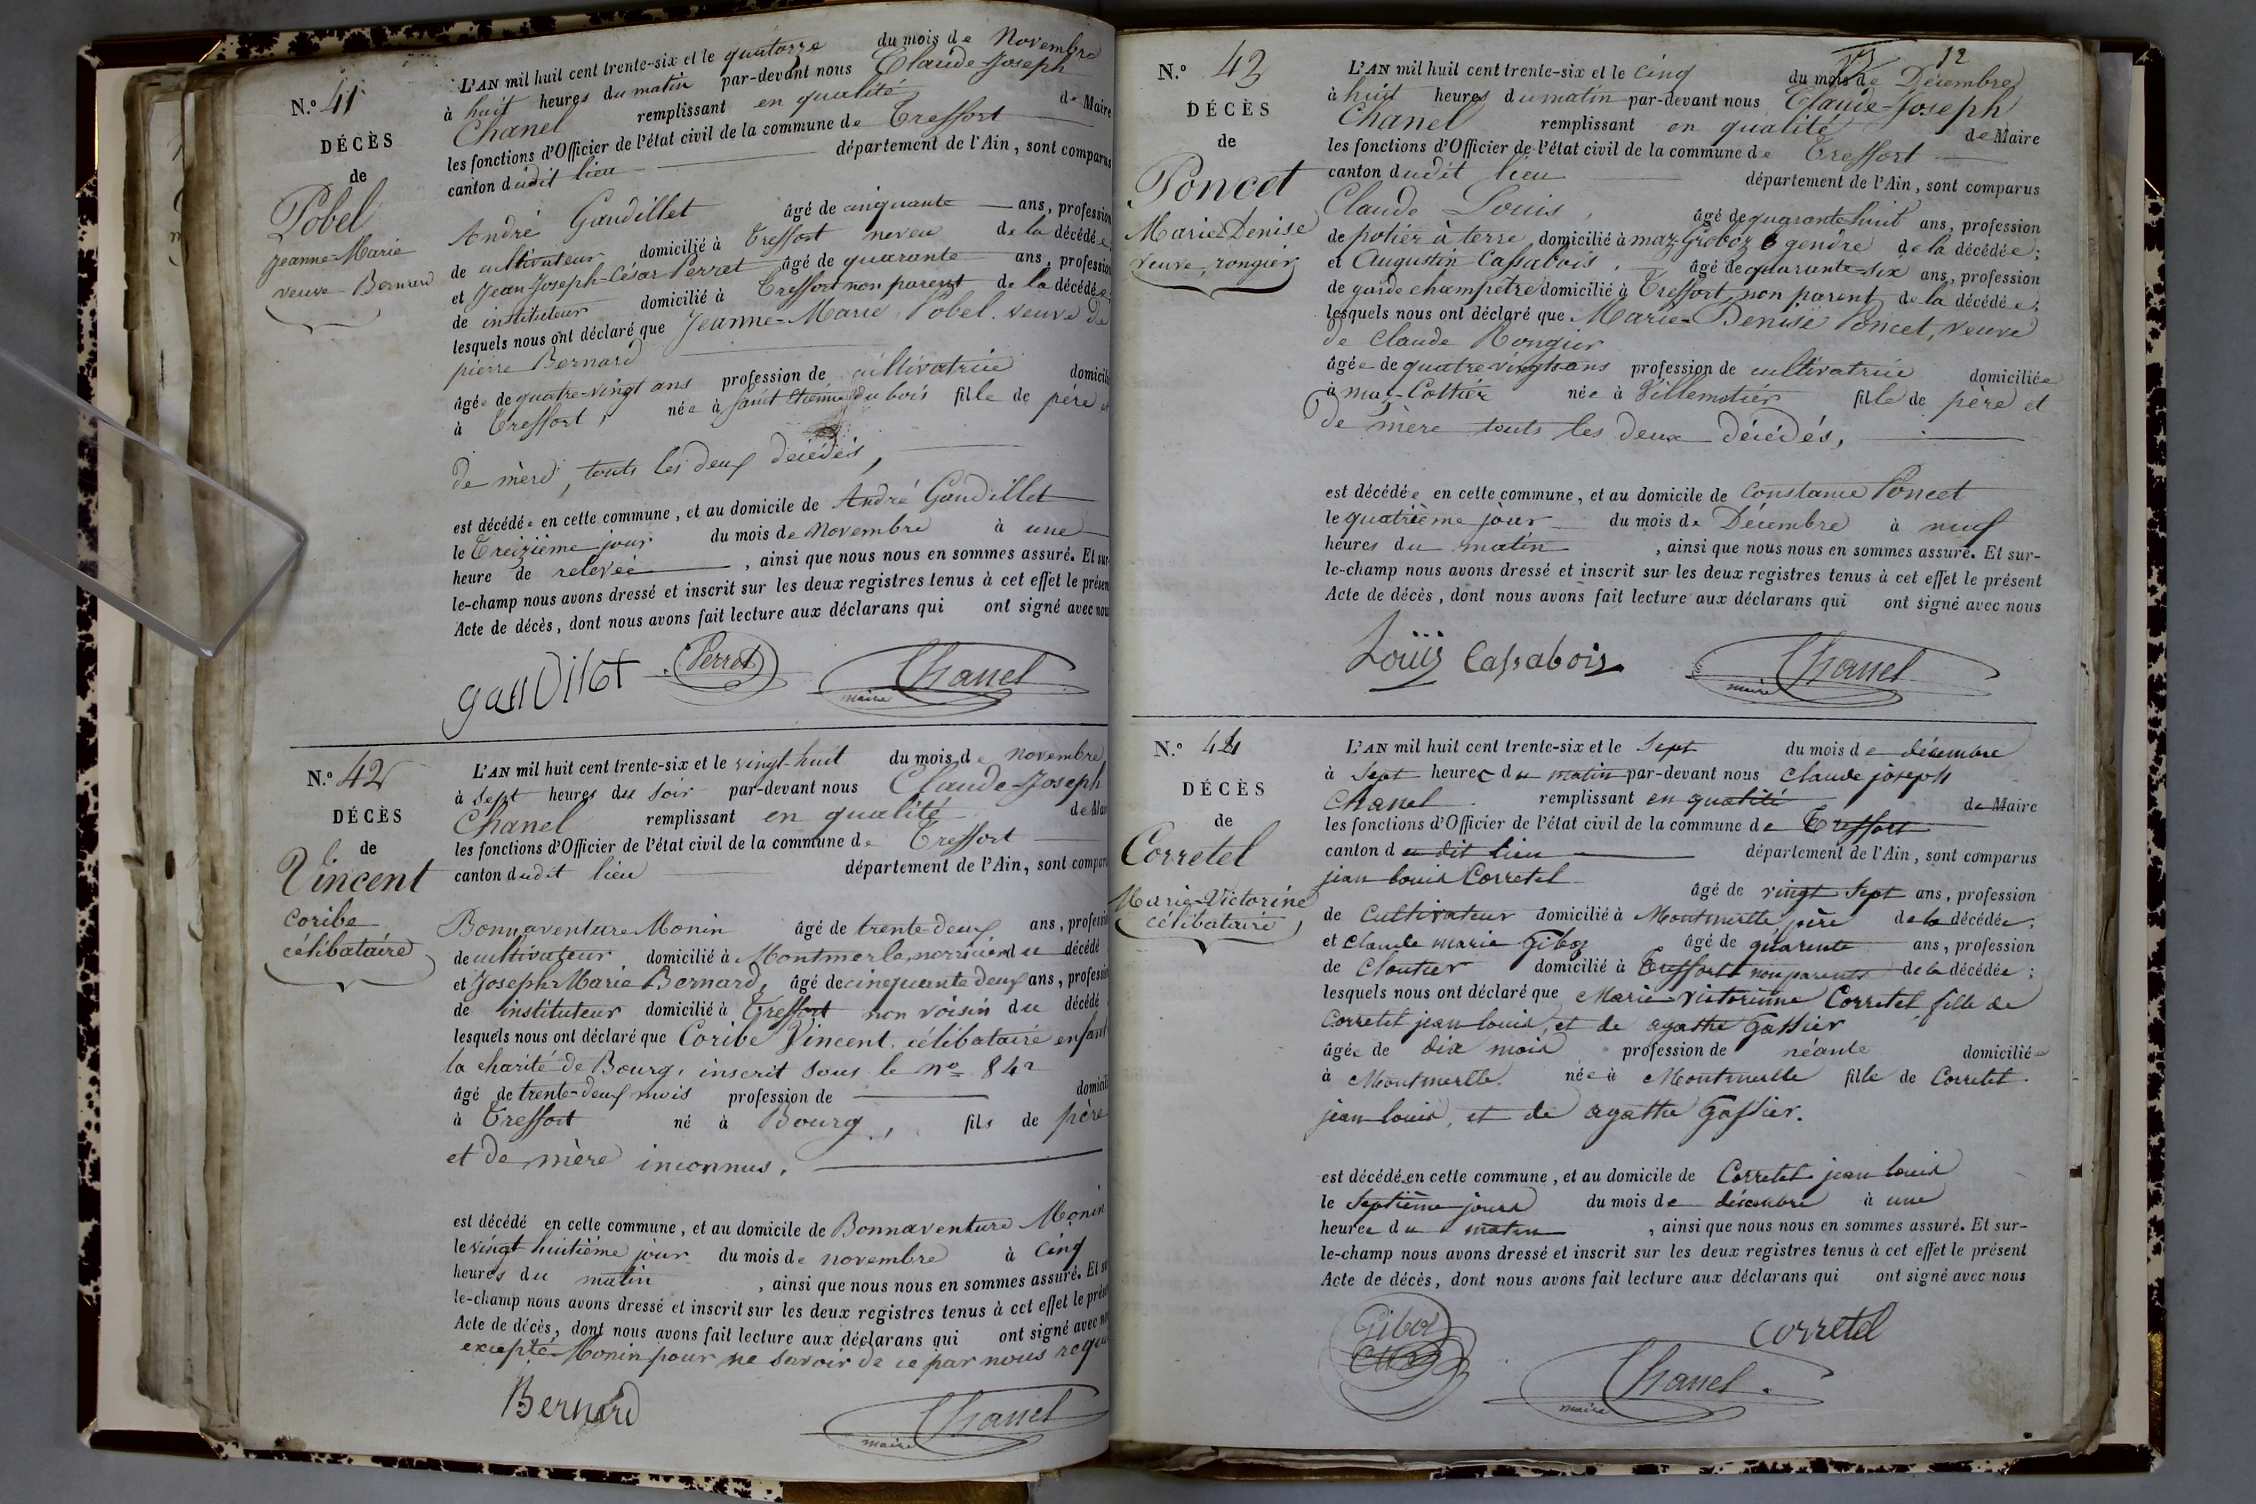 N.° 41
DÉCÈS
de
Pobel
Jeanne-Marie
veuve Bernard
L'AN mil huit cent trente-six et le quatorze du mois de Novembre
à huit heures du matin par-devant nous Claude-Joseph
Chanel remplissant en qualité de Maire
les fonctions d'Officier de l'état civil de la commune de Treffort
canton dudit lieu département de l'Ain, sont comparus
André Gaudillet âgé de cinquante ans, profession
de cultivateur domicilié à Treffort neveu de la décédée;
et Jean-Joseph-César Perret âgé de quarante ans, profession
de instituteur domicilié à Treffort non parent de la décédée;
lesquels nous ont déclaré que Jeanne-Marie Pobel veuve de
pierre Bernard
âgée de quatre-vingt ans profession de cultivatrice domicilié
à Treffort, née à saint Etienne du bois fille de père et
de mère, touts les deux décédés,
est décédée en cette commune, et au domicile de André Gaudillet
le Treizième jour du mois de novembre à une
heure de relevée, ainsi que nous nous en sommes assuré. Et sur-
le-champ nous avons dressé et inscrit sur les deux registres tenus à cet effet le présen
Acte de décès, dont nous avons fait lecture aux déclarans qui ont signé avec nou
gaudilot Perret Chanel
maire
N.° 42
DÉCÈS
de
Vincent
Coribe
célibataire
L'AN mil huit cent trente-six et le vingt-huit du mois de novembre
à sept heures du soir par-devant nous Claude-Joseph
Chanel remplissant en qualité de Mair
les fonctions d'Officier de l'état civil de la commune de Treffort
canton dudit lieu département de l'Ain, sont compar
Bonnaventure Monin âgé de trente-deux ans, professio
de cultivateur domicilié à Montmerle nourricier du décédé
et Joseph-Marie Bernard, âgé de cinquante deux ans, professio
de instituteur domicilié à Treffort non voisin du décédé
lesquels nous ont déclaré que Coribe Vincent célibataire enfant
la charité de Bourg, inscrit sous le n° 842
âgé de trente-deux mois profession de domicili
à Treffort né à Bourg, fils de père
et de mère inconnus.
est décédé en cette commune, et au domicile de Bonnaventure Monin
le vingt-huitième jour du mois de novembre à cinq
heures du matin, ainsi que nous nous en sommes assuré. Et su
le-champ nous avons dressé et inscrit sur les deux registres tenus à cet effet le prése
Acte de décès, dont nous avons fait lecture aux déclarans qui ont signé avec no
excepté Monin pour ne savoir de ce par nous requi
Bernard Chanel
maire
12
N.° 43
DÉCÈS
de
Poncet
Marie Denise
veuve, rongier
L'AN mil huit cent trente-six et le cinq du mois de Décembre
à huit heures du matin par-devant nous Claude-Joseph
Chanel remplissant en qualité de Maire
les fonctions d'Officier de l'état civil de la commune de Treffort
canton dudit lieu département de l'Ain, sont comparus
Claude Louis, âgé de quarante huit ans, profession
de potier à terre domicilié à maz-Groboz gendre de la décédée;
et Augustin Cassabois, âgé de quarante-six ans, profession
de garde champetre domicilié à Treffort non parent de la décédée;
lesquels nous ont déclaré que Marie-Denise Poncet, veuve
de Claude Rongier
âgée de quatre-vingts ans profession de cultivatrice domiciliée
à maz-Cottier née à Villemotier fille de père et
de mère touts les deux décédés,
est décédée en cette commune, et au domicile de Constance Poncet
le quatrième jour du mois de Décembre à neuf
heures du matin, ainsi que nous nous en sommes assuré. Et sur-
le-champ nous avons dressé et inscrit sur les deux registres tenus à cet effet le présent
Acte de décès, dont nous avons fait lecture aux déclarans qui ont signé avec nous
Louis Cassabois Chanel
maire
N.° 44
DÉCÈS
de
Corretel
Marie-Victorine
célibataire
L'AN mil huit cent trente-six et le sept du mois de décembre
à sept heures du matin par-devant nous claude joseph
Chanel remplissant en qualité de Maire
les fonctions d'Officier de l'état civil de la commune de Treffort
canton du dit lieu département de l'Ain, sont comparus
jean louis Corretel âgé de vingt sept ans, profession
de cultivateur domicilié à Montmerlle père de la décédée;
et claude marie Giboz âgé de quarente ans, profession
de cloutier domicilié à treffort non parents de la décédée;
lesquels nous ont déclaré que Marie victorinne Corretel fille de
Corretel jean louis, et de agathe gassier
âgée de dix mois profession de néante domiciliée
à Montmerlle née à Montmerlle fille de Corretel
jean louis, et de agathe gassier.
est décédé en cette commune, et au domicile de Corretel jean louis
le septième jours du mois de décembre à une
heures du matin, ainsi que nous nous en sommes assuré. Et sur-
le-champ nous avons dressé et inscrit sur les deux registres tenus à cet effet le présent
Acte de décès, dont nous avons fait lecture aux déclarans qui ont signé avec nous
Giboz corretel
Chanel.
maire